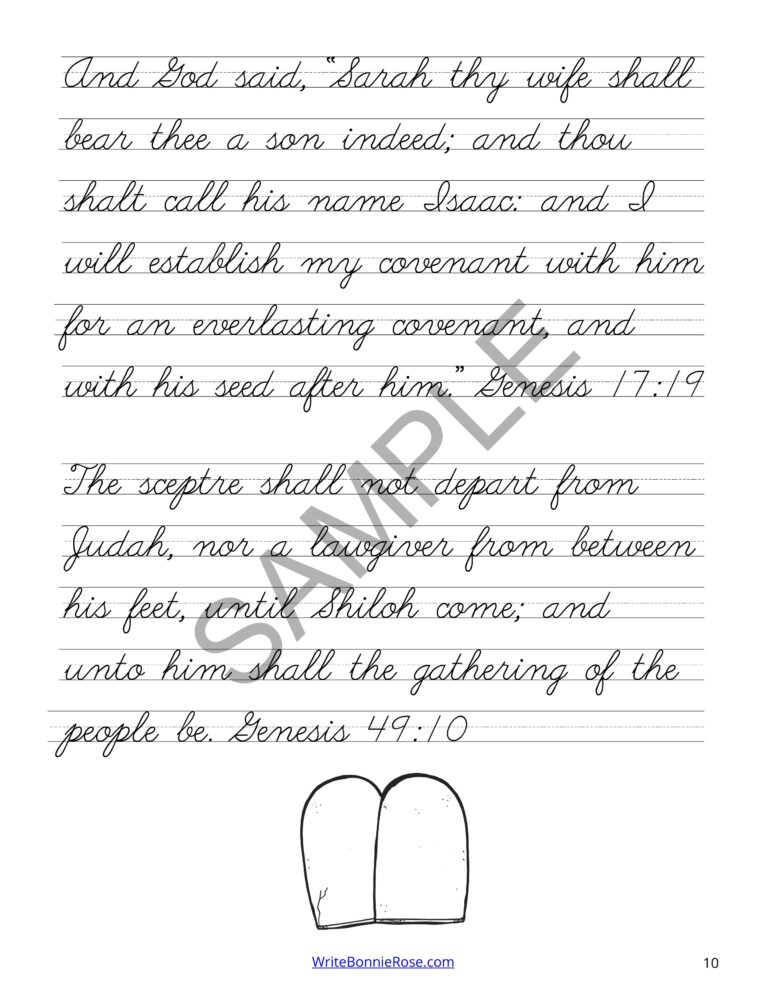 And God said, “Sarah thy wife shall
bear thee a son indeed; and thou
shalt call his name Isaac: and I
will establish my covenant with him
for an everlasting covenant, and
with his seed after him.” Genesis 17:19
The sceptre shall not depart from
Judah, nor a lawgiver from between
his feet, until Shiloh come; and
unto him shall the gathering of the
people be. Genesis 49:10
SAMPLE
WriteBonnieRose.com
10